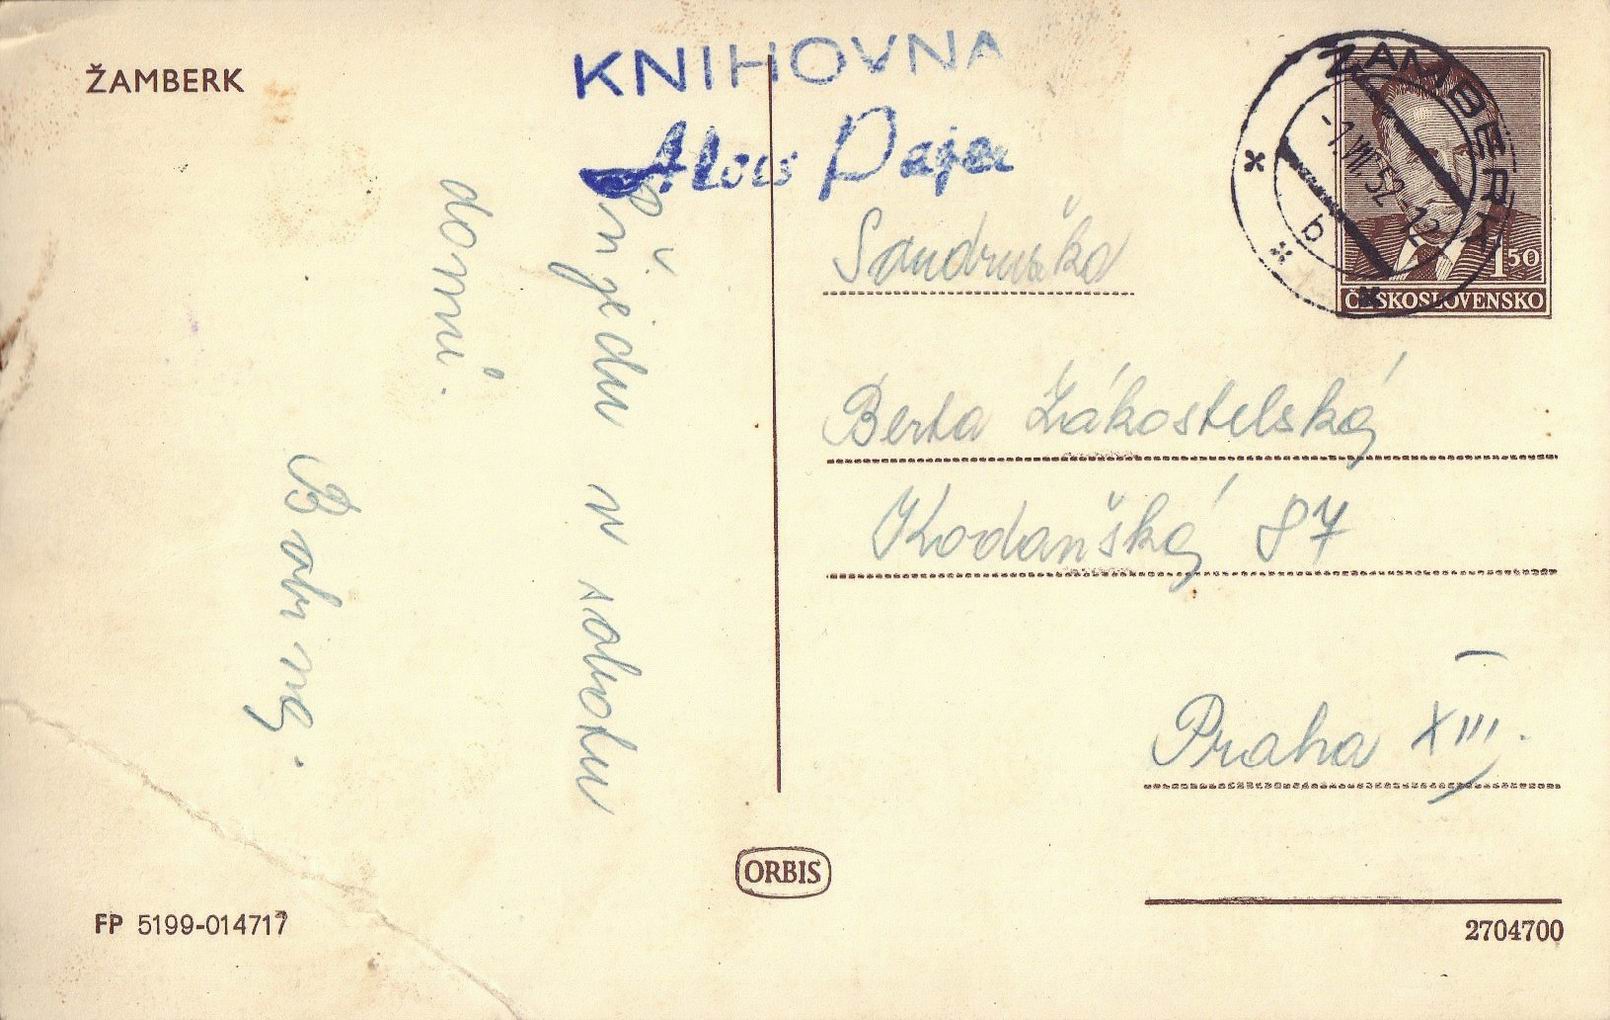 ŽAMBERK
KNIHOVNA
Alois Pajer
Přijedu v sobotu
domů.
ŽAMBERK
-1.VIII.52-12
b
150
ČESKOSLOVENSKO
Berta Zákostelská
Kodaňská 87
Praha XIII.
ORBIS
FP 5199-014717
2704700